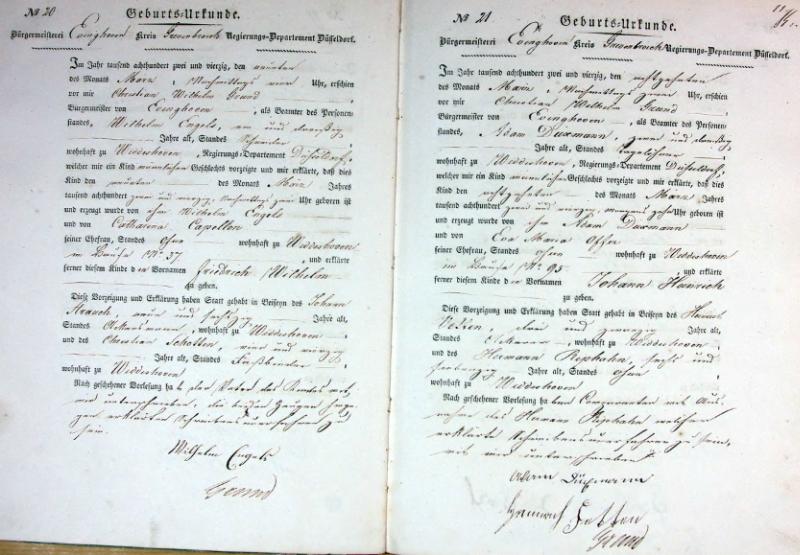 No 20
Geburts-Urkunde.
Bürgermeisterei Evinghoven Kreis Grevenbroich Regierungs-Departement Düsseldorf.
Im Jahr tausend achthundert zwei und vierzig, den neunten
des Monats März, Nachmittags vier Uhr, erschien
vor mir Christian Wilhelm Grund
Bürgermeister von Evinghoven, als Beamter des Personen-
standes, Wilhelm Engels, ein und dreißig
Jahre alt, Standes
wohnhaft zu Widdeshoven, Regierungs-Departement Düsseldorf,
welcher mir ein Kind männlichen Geschlechts vorzeigte und mir erklärte, daß dies
Kind den neunten des Monats März Jahres
tausend achthundert zwei und vierzig, Nachmittags zwei Uhr geboren ist
und erzeugt wurde von ihm Wilhelm Engels
und von Catharina Capellen
seiner Ehefrau, Standes ohne wohnhaft zu Widdeshoven
im Hause No. 37 und erklärte
ferner diesem Kinde den Vornamen Friedrich Wilhelm
zu geben.
Diese Vorzeigung und Erklärung haben Statt gehabt in Beiseyn des Johann
Strauch, neun und sechszig Jahre alt,
Standes Ackersmann, wohnhaft zu Widdeshoven
und des Christian Schotten, vier und vierzig
Jahre alt, Standes Faßbinder
wohnhaft zu Widdeshoven
Nach geschehener Vorlesung hat der Vater des Kindes mit
mir unterschrieben, die beiden Zeugen hinge-
gen erklärten Schreibensunerfahren zu
sein.
Wilhelm Engels
Grund
No 21
Geburts-Urkunde.
Bürgermeisterei Evinghoven Kreis Grevenbroich Regierungs-Departement Düsseldorf.
Im Jahr tausend achthundert zwei und vierzig, den achtzehnten
des Monats März, Nachmittags zwei Uhr, erschien
vor mir Christian Wilhelm Grund
Bürgermeister von Evinghoven, als Beamter des Personen-
standes, Adam Duxmann, zwei und dreißig
Jahre alt, Standes Tagelöhner
wohnhaft zu Widdeshoven, Regierungs-Departement Düsseldorf,
welcher mir ein Kind männlichen Geschlechts vorzeigte und mir erklärte, daß dies
Kind den achtzehnten des Monats März Jahres
tausend achthundert zwei und vierzig, morgens zehn Uhr geboren ist
und erzeugt wurde von ihm Adam Duxmann
und von Eva Maria Offer
seiner Ehefrau, Standes ohne wohnhaft zu Widdeshoven
im Hause No. 95 und erklärte
ferner diesem Kinde den Vornamen Johann Heinrich
zu geben.
Diese Vorzeigung und Erklärung haben Statt gehabt in Beiseyn des Heinrich
drei und zwanzig Jahre alt,
Standes Ackerer, wohnhaft zu Widdeshoven
und des Hermann Rephahn, sechs und
siebenzig Jahre alt, Standes ohne
wohnhaft zu Widdeshoven
Nach geschehener Vorlesung haben Comparenten mit Aus-
nahme des Hermann Rephahn welcher
erklärte Schreibensunerfahren zu sein,
mit mir unterschrieben.
Adam Düxmann
Heinrich
Grund